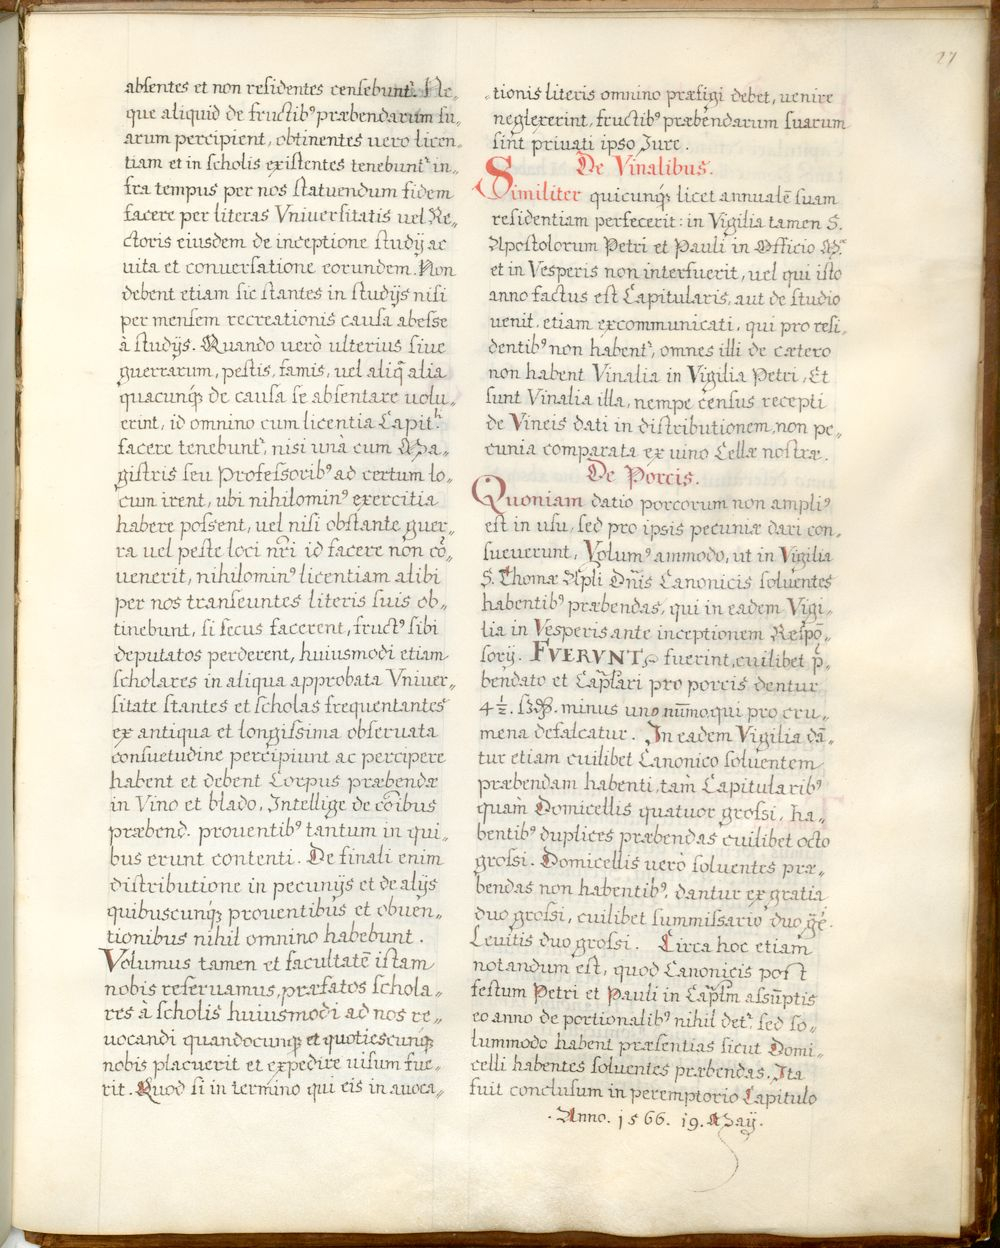 27
absentes et non residentes censebuntʳ. Ne„
que aliquid de fructibꝰ præbendarum su„
arum percipient, obtinentes uero licen„
tiam et in scholis existentes tenebuntʳ in„
fra tempus per nos statuendum fidem
facere per literas Vniuersitatis uel Re„
ctoris eiusdem de inceptione studij ac
uita et conuersatione eorundem. Non
debent etiam sic stantes in studijs nisi
per mensem recreationis causa abesse
à studijs. Quando uerò ulterius siue
guerrarum, pestis, famis, uel aliq̃ alia
quacunqꝫ de causa se absentare uolu„
erint, id omnino cum licentia Capitˡⁱ
facere tenebuntʳ, nisi unà cum Ma„
gistris seu Professoribꝰ ad certum lo„
cum irent, ubi nihilominꝰ exercitia
habere possent, uel nisi obstante guer„
ra uel peste loci nr̃i id facere non cõ„
uenerit, nihilominꝰ licentiam alibi
per nos transeuntes literis suis ob„
tinebunt, si secus facerent, fructꝰ sibi
deputatos perderent, huiusmodi etiam
scholares in aliqua approbata Vniuer„
sitate stantes et scholas frequentantes
ex antiqua et longissima obseruata
consuetudine percipiunt ac percipere
habent et debent Corpus præbendæ
in Vino et blado, Intellige de cõibus
præbend. prouentibꝰ tantum in qui„
bus erunt contenti. De finali enim
distributione in pecunijs et de alijs
quibuscunqꝫ prouentibus et obuen„
tionibus nihil omnino habebunt.
Volumus tamen et facultatẽ istam
nobis reseruamus, præfatos schola„
res à scholis huiusmodi ad nos re„
uocandi quandocunqꝫ et quotiescunqꝫ
nobis placuerit et expedire uisum fue„
rit. Quod si in termino qui eis in auoca„
„tionis literis omnino præfigi debet, uenire
neglexerint, fructibꝰ præbendarum suarum
sint priuati ipso Jure.
De Vinalibus.
Similiter quicunqꝫ licet annualẽ suam
residentiam perfecerit: in Vigilia tamen S.
Apostolorum Petri et Pauli in Officio Mᵉ.
et in Vesperis non interfuerit, uel qui isto
anno factus est Capitularis, aut de studio
uenit, etiam excommunicati, qui pro resi„
dentibꝰ non habentʳ, omnes illi de cætero
non habent Vinalia in Vigilia Petri, Et
sunt Vinalia illa, nempe census recepti
de Vineis dati in distributionem, non pe„
cunia comparata ex uino Cellæ nostræ.
De Porcis.
Quoniam datio porcorum non ampliꝰ
est in usu, sed pro ipsis pecuniæ dari con„
sueuerunt, Volumꝰ ammodo, ut in Vigilia
S. Thomæ Apli Dñis Canonicis soluentes
habentibꝰ præbendas, qui in eadem Vigi„
lia in Vesperis ante inceptionem Respõ„
sorij. FVERVNT, fuerint, cuilibet p̃„
bendato et Cap̃lari pro porcis dentur
4 ½. minus uno num̃o, qui pro cru„
mena defalcatur. In eadem Vigilia dã„
tur etiam cuilibet Canonico soluentem
præbendam habenti, tam Capitularibꝰ
quam Domicellis quatuor grossi, ha„
bentibꝰ duplices præbendas cuilibet octo
grossi. Domicellis uerò soluentes præ„
bendas non habentibꝰ, dantur ex gratia
duo grossi, cuilibet summissario duo gẽ.
Leuitis duo grossi. Circa hoc etiam
notandum est, quod Canonicis post
festum Petri et Pauli in Cap̃lm assũptis
eo anno de portionalibꝰ nihil detʳ, sed so„
lummodo habent præsentias sicut Domi„
celli habentes soluentes præbendas. Ita
fuit conclusum in peremptorio Capitulo
. Anno. 1566. 19. Maij.